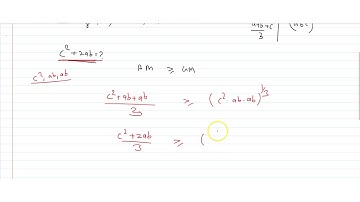 a+b+c / 3 | (abc)
c² + 2ab = ?
AM ≥ GM
c², ab, ab
c² + ab + ab / 3 ≥ (c² · ab · ab)^1/3
c² + 2ab / 3 ≥ (